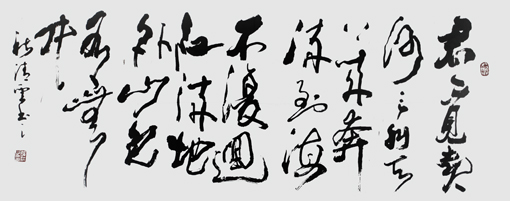 君不見黃
河之水天
上來奔
流到海
不復迴
江流地
外山色
有無
中
清雲書